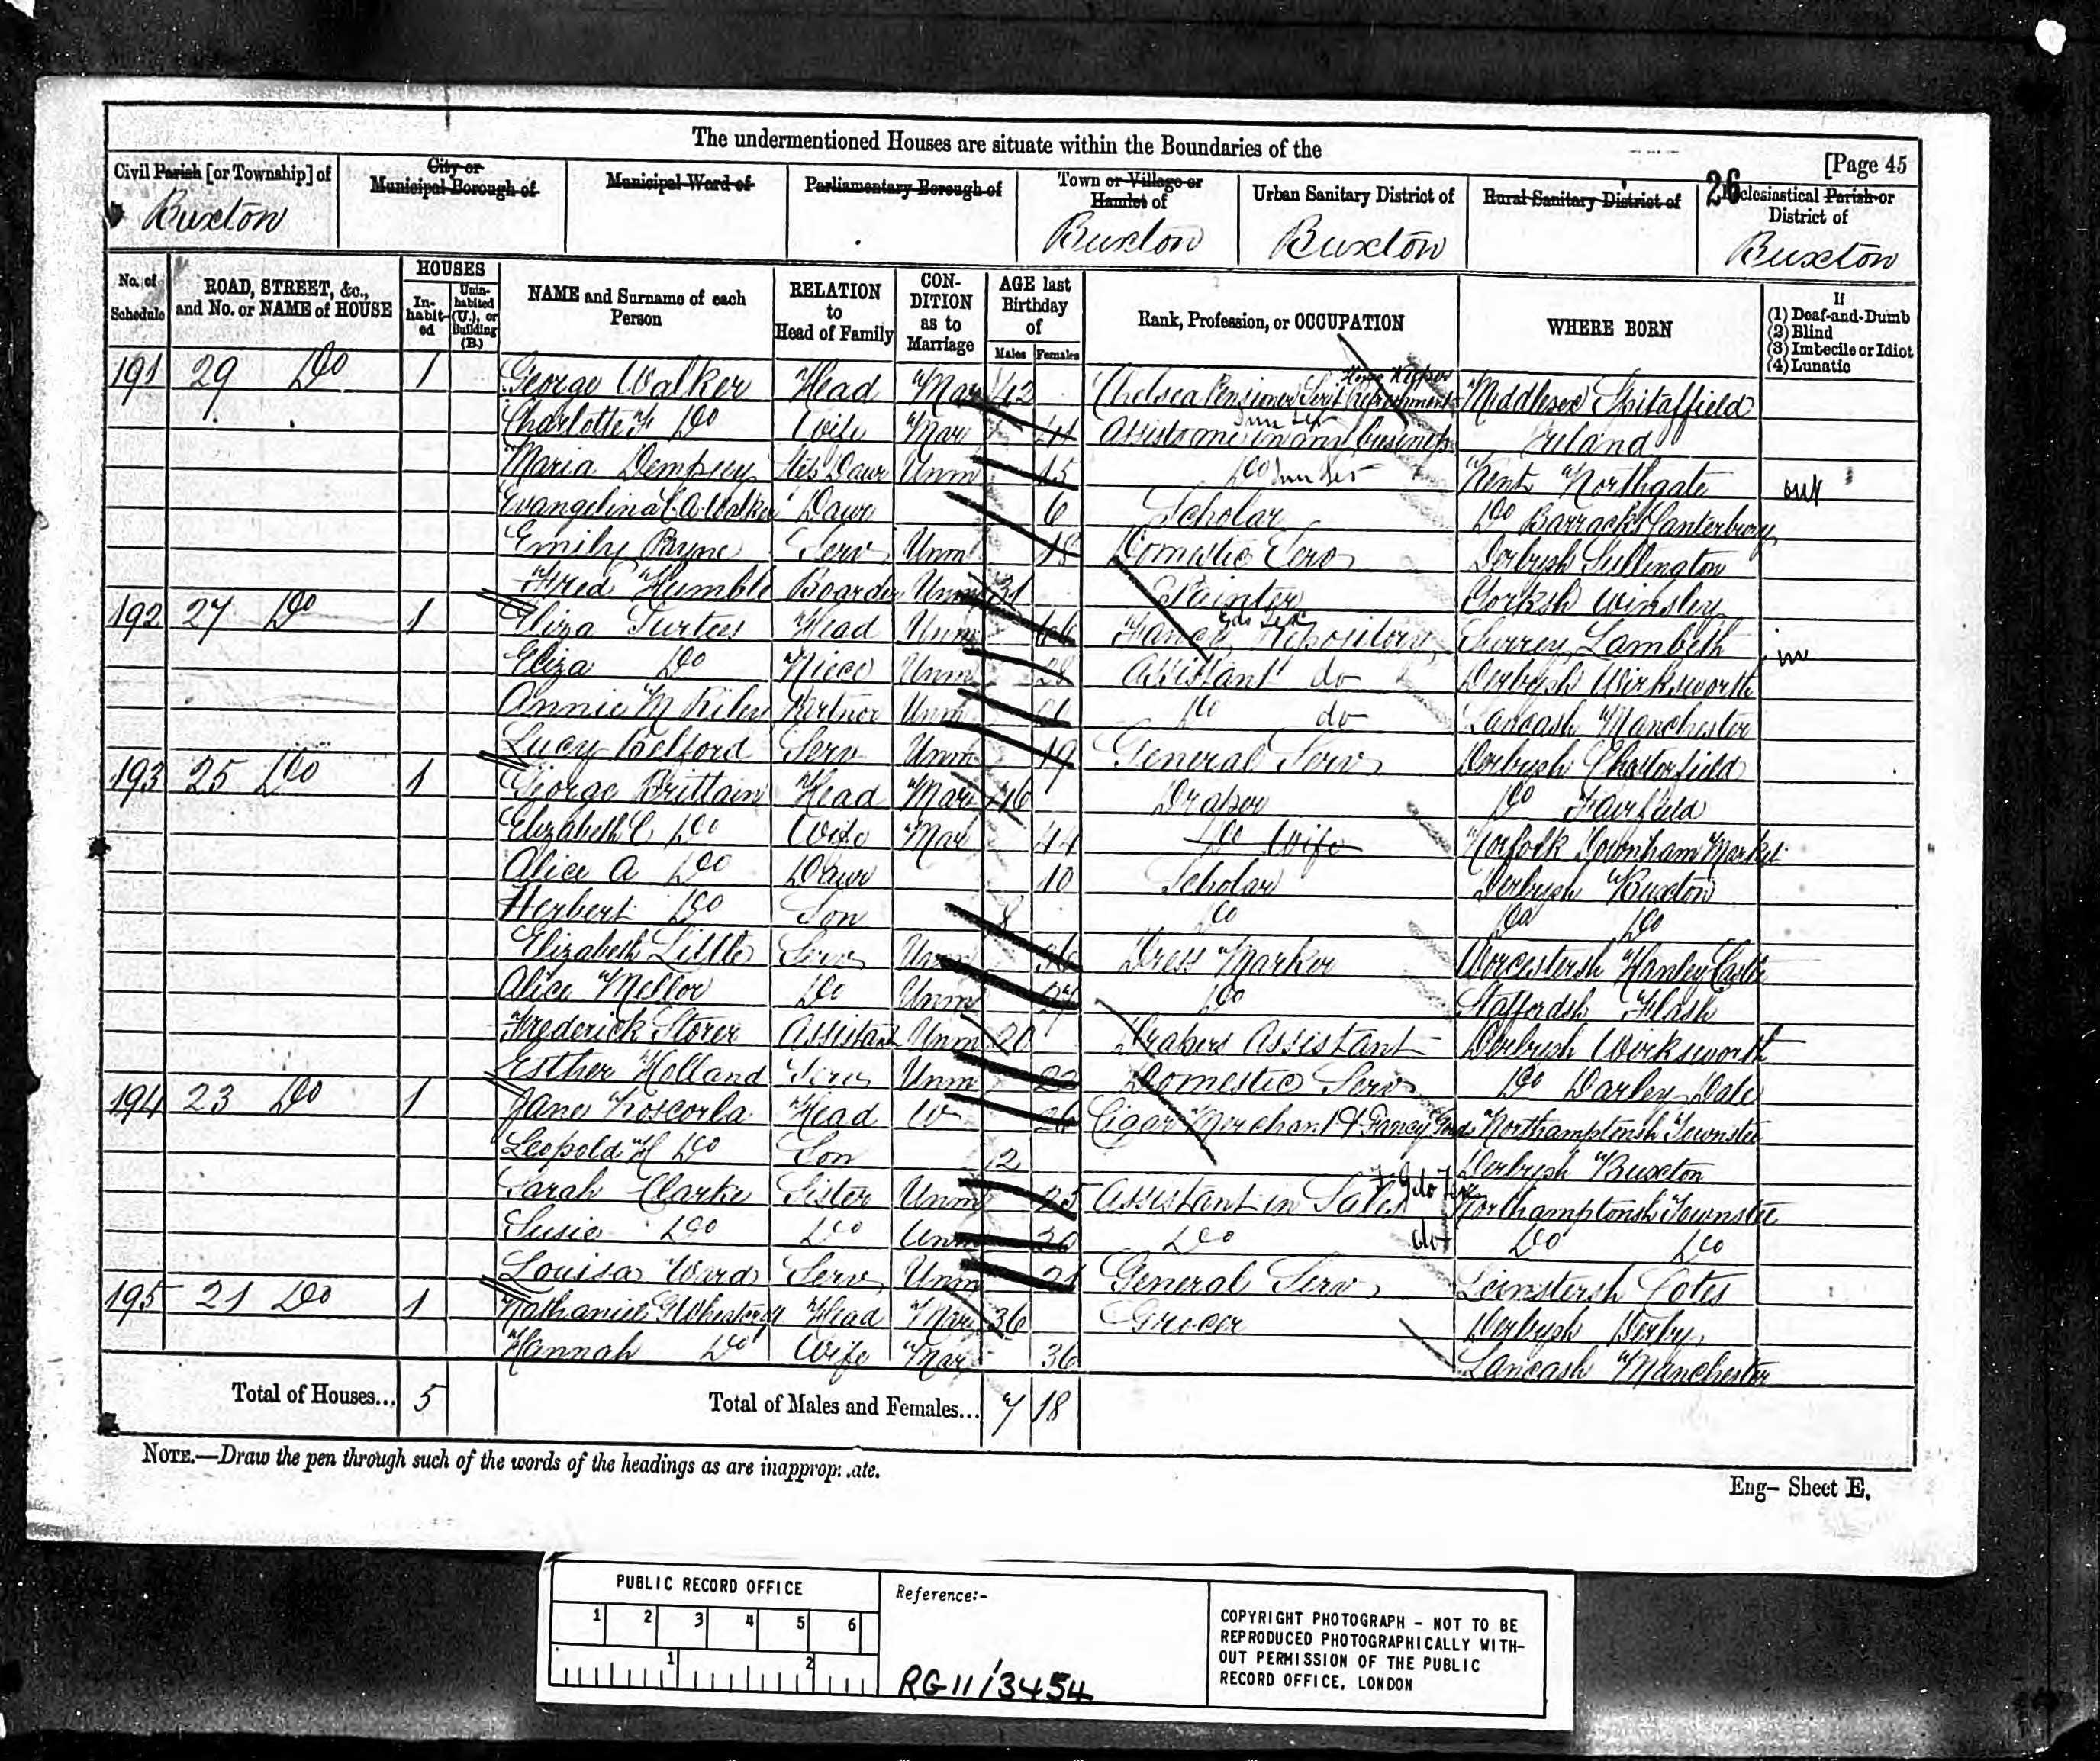 The undermentioned Houses are situate within the Boundaries of the
[Page 45
26
Civil Parish [or Township] of
Buxton
City or Municipal Borough of
Municipal Ward of
Parliamentary Borough of
Town or Village or Hamlet of
Buxton
Urban Sanitary District of
Buxton
Rural Sanitary District of
Ecclesiastical Parish or District of
Buxton
No. of Schedule
ROAD, STREET, &c., and No. or NAME of HOUSE
HOUSES
In-habit-ed
Unin-habited (U.), or Building (B.)
NAME and Surname of each Person
RELATION to Head of Family
CON-DITION as to Marriage
AGE last Birthday of
Males
Females
Rank, Profession, or OCCUPATION
WHERE BORN
If
(1) Deaf-and-Dumb
(2) Blind
(3) Imbecile or Idiot
(4) Lunatic
191 29 Do 1 George Walker Head Mar 42 Chelsea Pensioner Middlesex Spitalfield
Charlotte Do Wife Mar 41 Assist me in my business Ireland
Maria Dempsey Step Daur Unm 15 Do Kent Northgate
Evangelina C A Walker Daur 6 Scholar Do Barracks Canterbury
Emily Payne Serv Unm 18 Domestic Serv Derbysh
Fred Humble Boarder Unm 31 Painter Yorksh Winsley
192 27 Do 1 Eliza Surtees Head Unm 66 Fancy Repository Surrey Lambeth
Eliza Do Niece Unm 28 Assistant do Derbysh Wirksworth
Annie M Riley Partner Unm Do do Lancash Manchester
Lucy Belford Serv Unm 19 General Serv Derbysh Chesterfield
193 25 Do 1 George Brittain Head Mar 46 Draper Do Fairfield
Elizabeth C Do Wife Mar 44 Do Wife Norfolk Downham Market
Alice A Do Daur 10 Scholar Derbysh Buxton
Herbert Do Son 8 Do Do Do
Elizabeth Little Serv Unm 36 Dress Marker Worcestersh Hanley Castle
Alice Mellor Do Unm 27 Do Staffordsh Flash
Frederick Storer Assistant Unm 20 Drapers Assistant Derbysh Wirksworth
Esther Holland Serv Unm 22 Domestic Serv Do Darley Dale
194 23 Do 1 Jane Roscorla Head W 26 Cigar Merchant & Fancy Goods Northamptonsh Townstee
Leopold H Do Son 2 Derbysh Buxton
Sarah Clarke Sister Unm 25 Assistant in Sales Northamptonsh Townstee
Susie Do Do Unm 30 Do Do Do
Louisa Ward Serv Unm 21 General Serv Leinstersh Cotes
195 21 Do 1 Nathaniel G Head Mar 36 Grocer Derbysh Derby
Hannah Do Wife Mar 36 Lancash Manchester
Total of Houses... 5 Total of Males and Females... 7 18
NOTE.—Draw the pen through such of the words of the headings as are inappropriate.
Eng– Sheet E.
PUBLIC RECORD OFFICE
1 2 3 4 5 6
1 2
Reference:-
RG11/3454
COPYRIGHT PHOTOGRAPH – NOT TO BE
REPRODUCED PHOTOGRAPHICALLY WITH-
OUT PERMISSION OF THE PUBLIC
RECORD OFFICE, LONDON